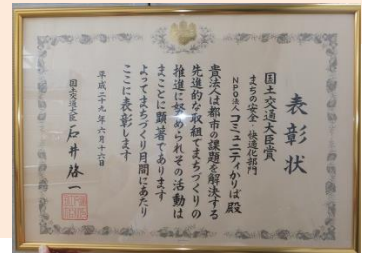 表彰状
国土交通大臣賞
まちの安全・快適化部門
NPO法人コミュニティかりば殿
貴法人は都市の課題を解決する
先進的な取組でまちづくりの
推進に努められその活動は
まことに顕著であります
よってまちづくり月間にあたり
ここに表彰します
平成二十九年六月十六日
国土交通大臣 石井啓一